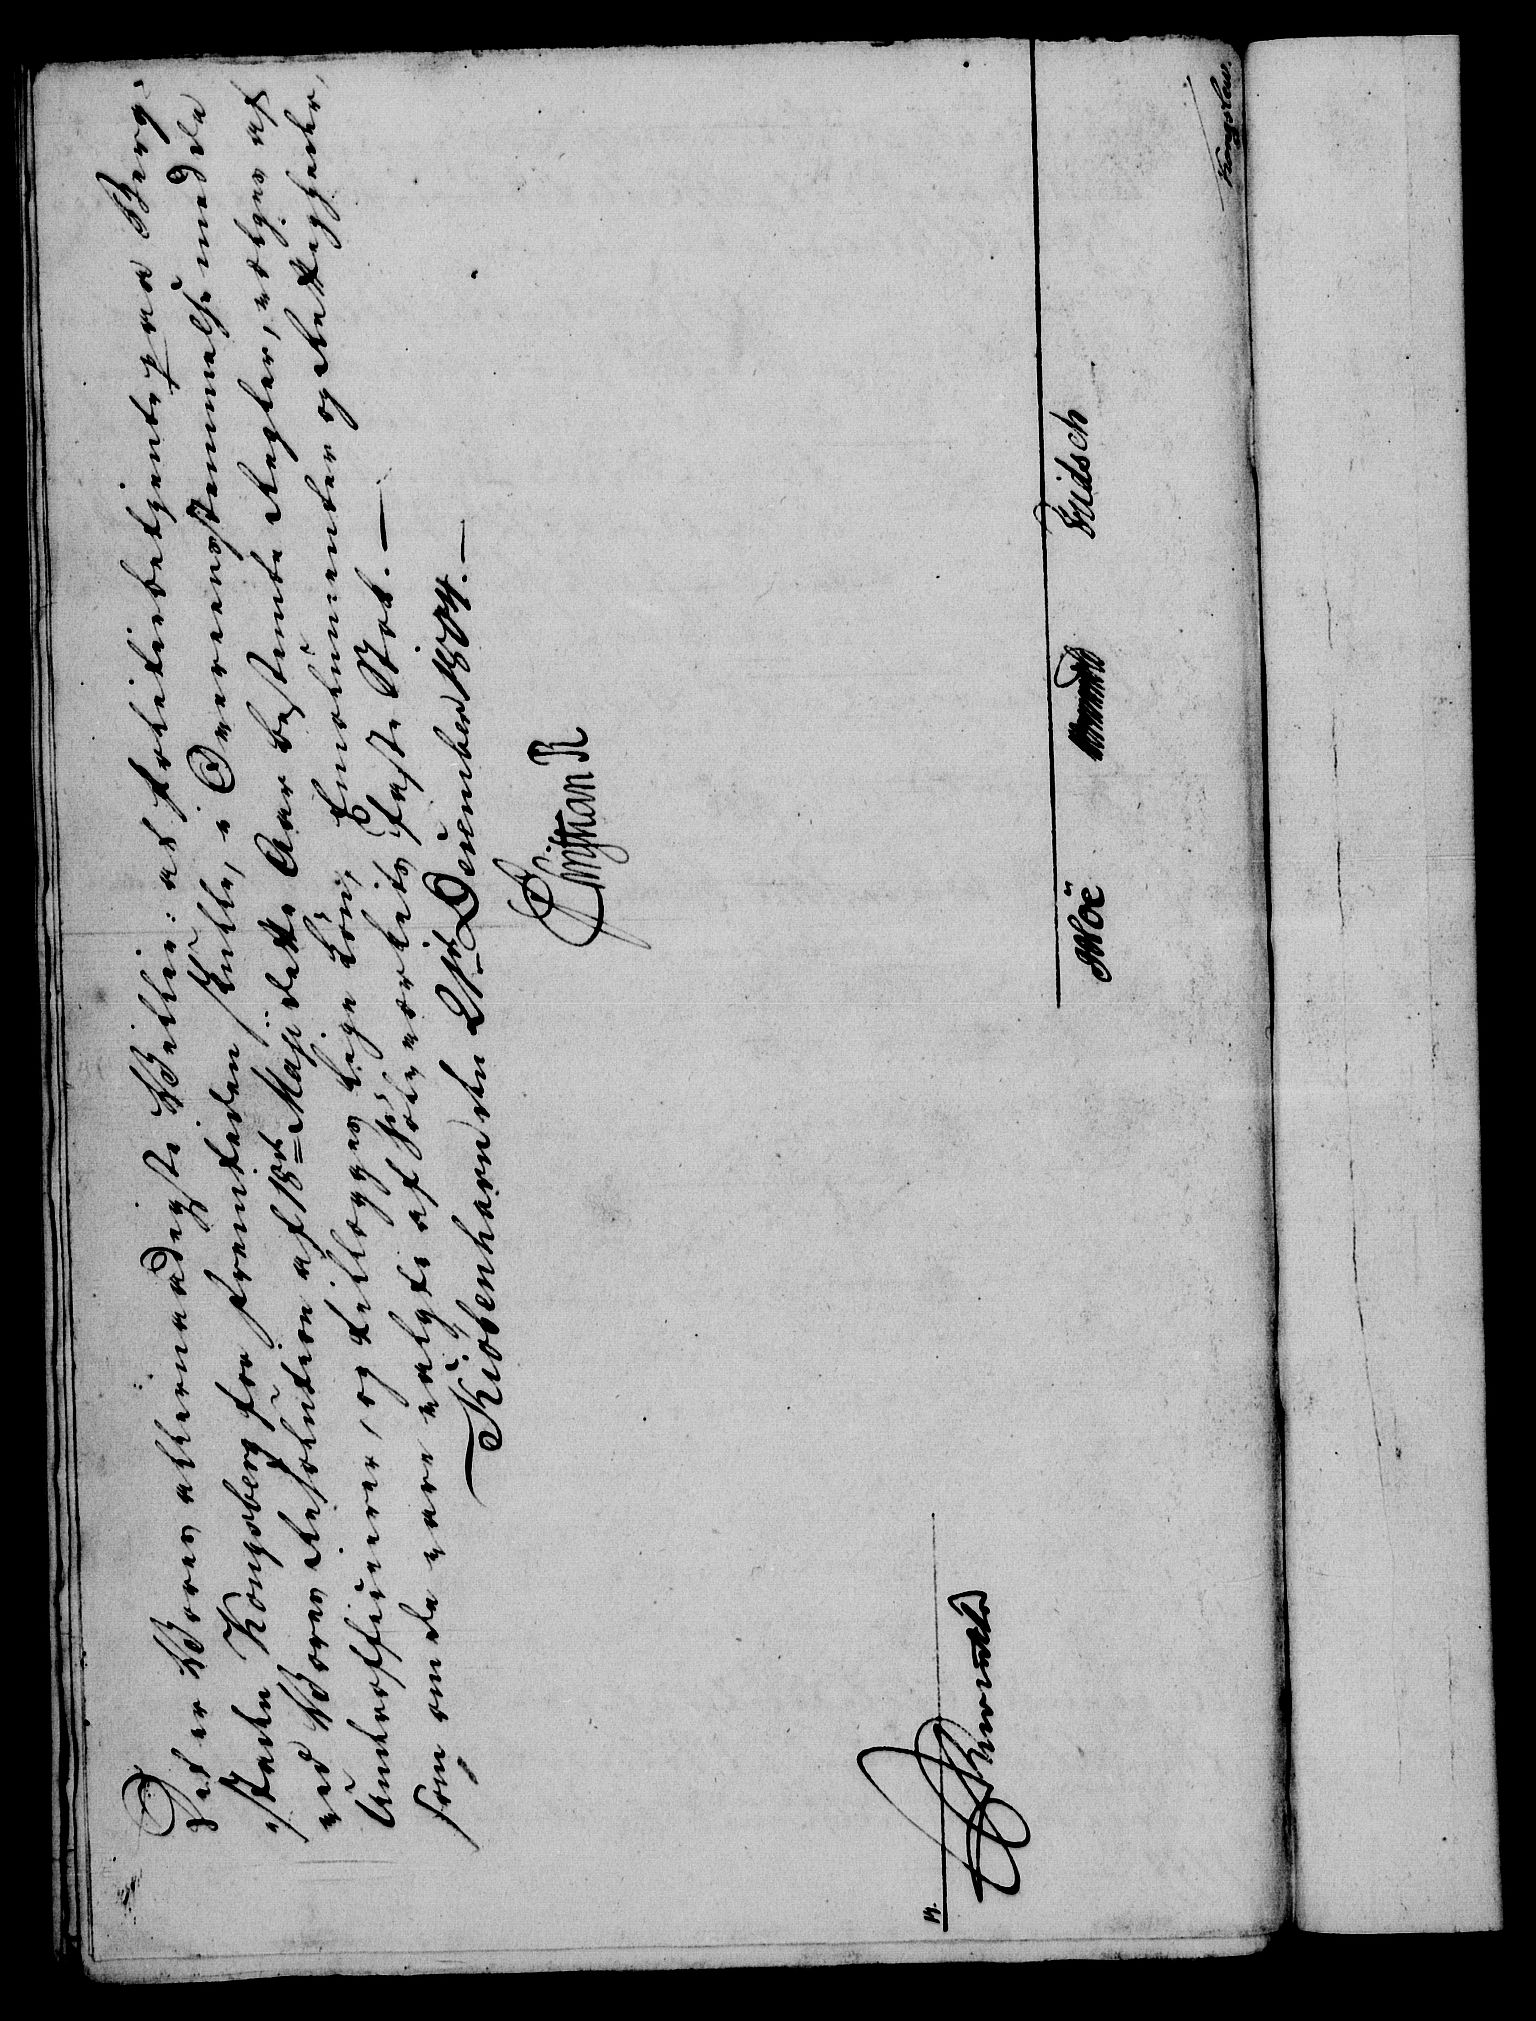 Det er Vores allernaadigste Villie: at Politiebetjente paa Berg-
staden Kongsberg for Fremtiden skulle, i Overensstemmelse med de
ved Vores Resolution af 18de Maji dette Aar bestemte Regler, vælges af
Underofficierer, og tillægges lige Løn, Emolumenter og Rettigheder,
som om de vare valgte af Sølvværkets faste Stok. —
Kiöbenhavn den 21de December 1804. —
Christian R
Moë
Fridsch
Kongslew.